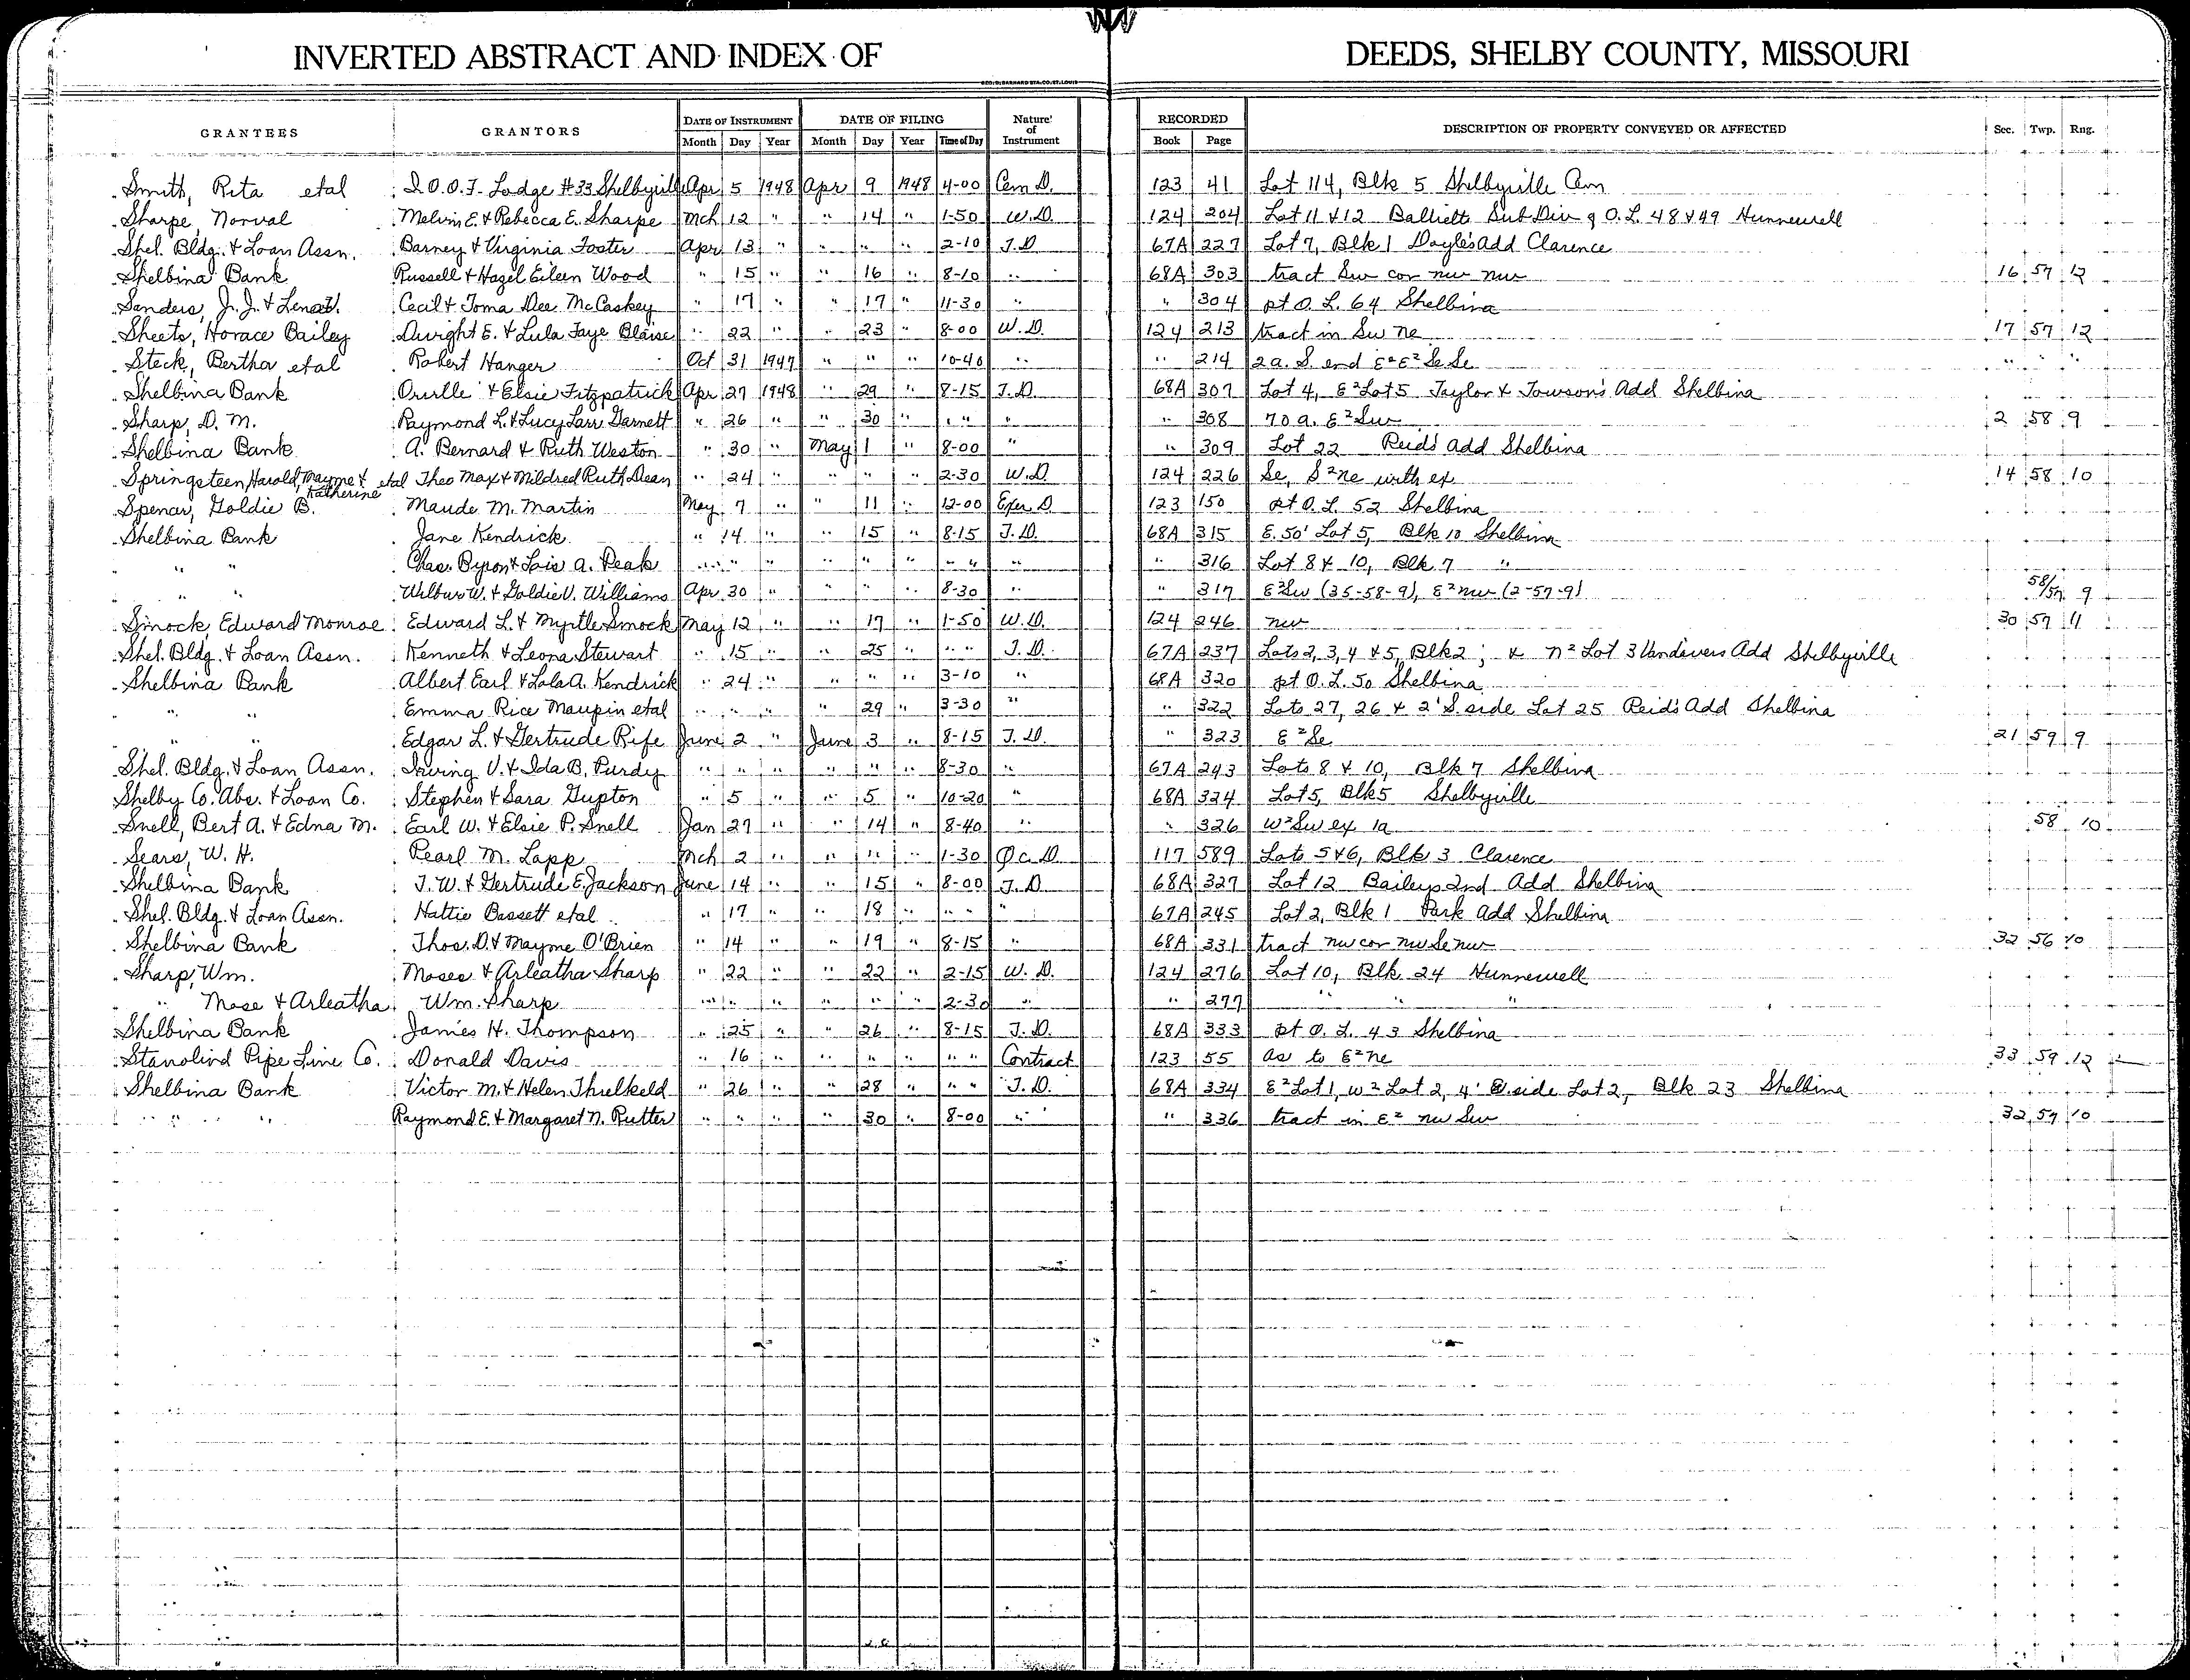 INVERTED ABSTRACT AND INDEX OF DEEDS, SHELBY COUNTY, MISSOURI
GEO. D. BARNARD STA. CO. ST. LOUIS
GRANTEES GRANTORS DATE OF INSTRUMENT DATE OF FILING Nature of Instrument RECORDED DESCRIPTION OF PROPERTY CONVEYED OR AFFECTED Sec. Twp. Rng.
Month Day Year Month Day Year Time of Day Book Page
Smith, Rita etal I.O.O.F. Lodge #33 Shelbyville Apr 5 1948 Apr 9 1948 4-00 Cem D. 123 41 Lot 114, Blk 5 Shelbyville Cem
Sharpe, Norval Melvin E. & Rebecca E. Sharpe Mch 12 " " 14 " 1-50 W.D. 124 204 Lot 11 & 12 Ballietts Sub Div of O.L. 48 & 49 Hunnewell
Shel. Bldg. & Loan Assn. Barney & Virginia Foster Apr 13 " " " " 2-10 T.D. 67A 227 Lot 7, Blk 1 Doyle's Add Clarence
Shelbina Bank Russell & Hazel Eileen Wood " 15 " " 16 " 8-10 " 68A 303 tract Sw cor nw nw 16 57 12
Sanders, J.J. & Lena Cecil & Toma Dee McCaskey " 17 " " 17 " 11-30 " " 304 pt O.L. 64 Shelbina
Sheets, Horace Bailey Dwight E. & Lula Faye Blaise " 22 " " 23 " 8-00 W.D. 124 213 tract in Sw ne 17 57 12
Steck, Bertha etal Robert Hanger Oct 31 1947 " " " 10-40 " " 214 2a. S. end E²E² Se Se " " "
Shelbina Bank Orville & Elsie Fitzpatrick Apr 27 1948 " 29 " 8-15 T.D. 68A 307 Lot 4, E² Lot 5 Taylor & Towson's Add Shelbina
Sharp, D. M. Raymond L. & Lucy Larr Garnett " 26 " " 30 " " " " " 308 70 a. E² Sw 2 58 9
Shelbina Bank A. Bernard & Ruth Weston " 30 " May 1 " 8-00 " " 309 Lot 22 Reid's Add Shelbina
Springsteen, Harold, Mayme & Katherine etal Theo Max & Mildred Ruth Dean " 24 " " " " 2-30 W.D. 124 226 Se, S² ne with ex 14 58 10
Spencer, Goldie B. Maude M. Martin May 7 " 11 " 12-00 Exer D. 123 150 pt O.L. 52 Shelbina
Shelbina Bank Jane Kendrick " 14 " " 15 " 8-15 T.D. 68A 315 E. 50' Lot 5, Blk 10 Shelbina
" " Chas. Byron & Lois A. Peak " " " " " " " " " " 316 Lot 8 & 10, Blk 7 "
" " Wilbur W. & Goldie V. Williams Apr 30 " " " " 8-30 " " 317 E² Sw (35-58-9), E² nw (2-57-9) 58/57 9
Smock, Edward Monroe Edward L. & Myrtle Smock May 12 " " 17 " 1-50 W.D. 124 246 nw 30 57 11
Shel. Bldg. & Loan Assn. Kenneth & Leona Stewart " 15 " " 25 " " " T.D. 67A 237 Lots 2, 3, 4 & 5, Blk 2; & N² Lot 3 Vandivers Add Shelbyville
Shelbina Bank Albert Earl & Lola A. Kendrick " 24 " " " " 3-10 " 68A 320 pt O.L. 50 Shelbina
" " Emma Rice Maupin etal " " " " 29 " 3-30 " " 322 Lots 27, 26 & 2' S. side Lot 25 Reid's Add Shelbina
" " Edgar L. & Gertrude Rife June 2 " June 3 " 8-15 T.D. " 323 E² Se 21 59 9
Shel. Bldg. & Loan Assn. Irving V. & Ida B. Purdy " " " " " " 8-30 " 67A 243 Lots 8 & 10, Blk 7 Shelbina
Shelby Co. Abs. & Loan Co. Stephen & Sara Gupton " 5 " " 5 " 10-20 " 68A 324 Lot 5, Blk 5 Shelbyville
Snell, Bert A. & Edna M. Earl W. & Elsie P. Snell Jan 27 " " 14 " 8-40 " " 326 W² Sw ex 1a 58 10
Sears, W. H. Pearl M. Lapp Mch 2 " " " " 1-30 Q.C.D. 117 589 Lots 5 & 6, Blk 3 Clarence
Shelbina Bank T. W. & Gertrude E. Jackson June 14 " " 15 " 8-00 T.D. 68A 327 Lot 12 Baileys 2nd Add Shelbina
Shel. Bldg. & Loan Assn. Hattie Bassett etal " 17 " " 18 " " " " 67A 245 Lot 2, Blk 1 Park Add Shelbina
Shelbina Bank Thos. D. & Mayme O'Brien " 14 " " 19 " 8-15 " 68A 331 tract nw cor nw Se nw 32 56 10
Sharp, Wm. Moses & Arleatha Sharp " 22 " " 22 " 2-15 W.D. 124 276 Lot 10, Blk 24 Hunnewell
" Mose & Arleatha Wm. Sharp " " " " " " 2-30 " " 277 " " "
Shelbina Bank James H. Thompson " 25 " " 26 " 8-15 T.D. 68A 333 pt O.L. 43 Shelbina
Stanolind Pipe Line Co. Donald Davis " 16 " " " " " " Contract 123 55 as to E² ne 33 59 12
Shelbina Bank Victor M. & Helen Threlkeld " 26 " " 28 " " " T.D. 68A 334 E² Lot 1, W² Lot 2, 4' E. side Lot 2, Blk 23 Shelbina
" " " Raymond E. & Margaret N. Rutter " " " " 30 " 8-00 " " 336 tract in E² nw Sw 32 57 10